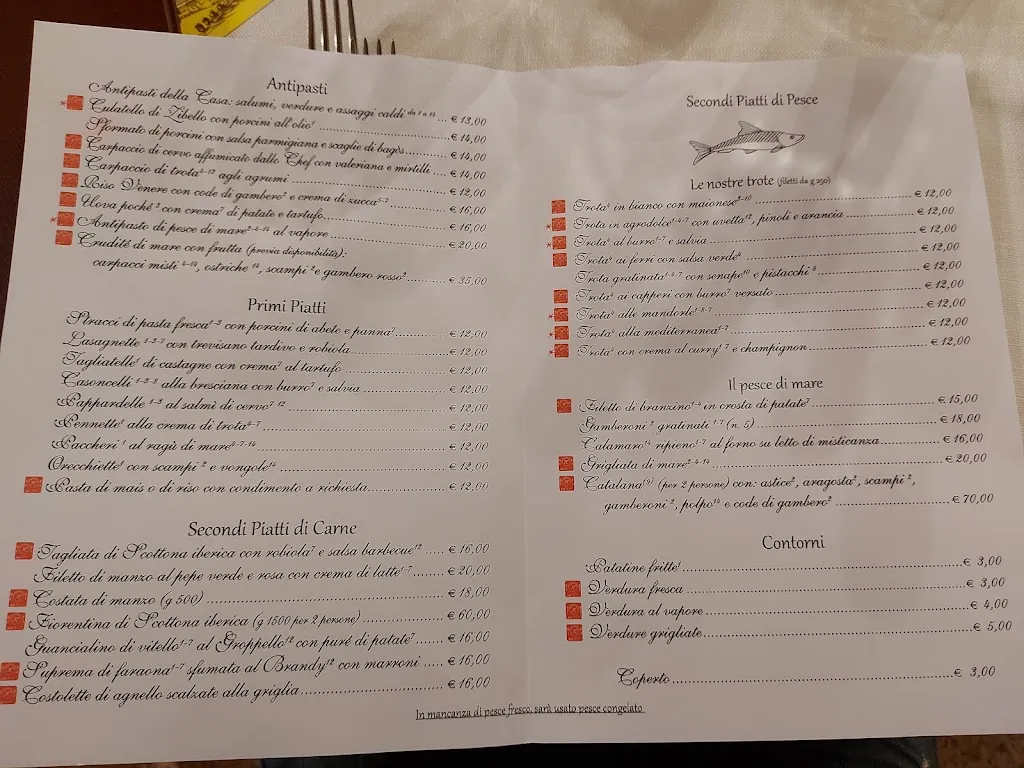 Antipasti
Antipasti della Casa: salumi, verdure e assaggi caldi da 1 a 14 ... € 13,00
Culatello di Zibello con porcini all'olio¹ ... € 14,00
Sformato di porcini con salsa parmigiana e scaglie di bagòs ... € 14,00
Carpaccio di cervo affumicato dallo Chef con valeriana e mirtilli ... € 14,00
Carpaccio di trota⁴⁻¹² agli agrumi ... € 12,00
Riso Venere con code di gambero² e crema di zucca⁵⁻⁷ ... € 16,00
Uova poché³ con crema⁷ di patate e tartufo ... € 16,00
Antipasto di pesce di mare²⁻⁴⁻¹⁴ al vapore ... € 20,00
Crudité di mare con frutta (previa disponibilità):
carpacci misti⁴⁻¹⁴, ostriche¹⁴, scampi² e gambero rosso² ... € 35,00
Primi Piatti
Stracci di pasta fresca¹⁻³ con porcini di abete e panna⁷ ... € 12,00
Lasagnette¹⁻³⁻⁷ con trevisano tardivo e robiola ... € 12,00
Tagliatelle¹ di castagne con crema⁷ al tartufo ... € 12,00
Casoncelli¹⁻³⁻⁸ alla bresciana con burro⁷ e salvia ... € 12,00
Pappardelle¹⁻³ al salmì di cervo⁷⁻¹² ... € 12,00
Pennette¹ alla crema di trota⁴⁻⁷ ... € 12,00
Paccheri¹ al ragù di mare⁴⁻⁷⁻¹⁴ ... € 12,00
Orecchiette¹ con scampi² e vongole¹⁴ ... € 12,00
Pasta di mais o di riso con condimento a richiesta ... € 12,00
Secondi Piatti di Carne
Tagliata di Scottona iberica con robiola⁷ e salsa barbecue¹² ... € 16,00
Filetto di manzo al pepe verde e rosa con crema di latte¹⁻⁷ ... € 20,00
Costata di manzo (g 500) ... € 18,00
Fiorentina di Scottona iberica (g 1500 per 2 persone) ... € 60,00
Guancialino di vitello¹⁻⁷ al Groppello¹² con puré di patate⁷ ... € 16,00
Suprema di faraona¹⁻⁷ sfumata al Brandy¹² con marroni ... € 16,00
Costolette di agnello scalzate alla griglia ... € 16,00
Secondi Piatti di Pesce
Le nostre trote (filetti da g 250)
Trota⁴ in bianco con maionese³⁻¹⁰ ... € 12,00
Trota in agrodolce¹⁻⁴⁻⁷ con uvetta¹², pinoli e arancia ... € 12,00
Trota⁴ al burro¹⁻⁷ e salvia ... € 12,00
Trota⁴ ai ferri con salsa verde⁴ ... € 12,00
Trota gratinata¹⁻⁴⁻⁷ con senape¹⁰ e pistacchi⁸ ... € 12,00
Trota⁴ ai capperi con burro⁷ versato ... € 12,00
Trota⁴ alle mandorle¹⁻⁸⁻⁷ ... € 12,00
Trota⁴ alla mediterranea¹⁻⁷ ... € 12,00
Trota⁴ con crema al curry¹⁻⁷ e champignon ... € 12,00
Il pesce di mare
Filetto di branzino¹⁻⁴ in crosta di patate⁷ ... € 15,00
Gamberoni² gratinati¹⁻⁷ (n. 5) ... € 18,00
Calamaro¹⁴ ripieno¹⁻⁷ al forno su letto di misticanza ... € 16,00
Grigliata di mare²⁻⁴⁻¹⁴ ... € 20,00
Catalana⁽⁹⁾ (per 2 persone) con: astice², aragosta², scampi²,
gamberoni², polpo¹⁴ e code di gambero² ... € 70,00
Contorni
Patatine fritte¹ ... € 3,00
Verdura fresca ... € 3,00
Verdura al vapore ... € 4,00
Verdure grigliate ... € 5,00
Coperto ... € 3,00
In mancanza di pesce fresco, sarà usato pesce congelato